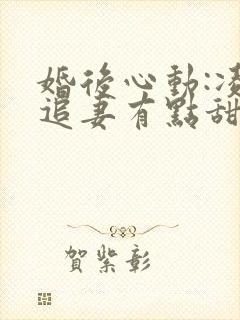 婚後心動:凌
追妻有點甜
賀紫彰